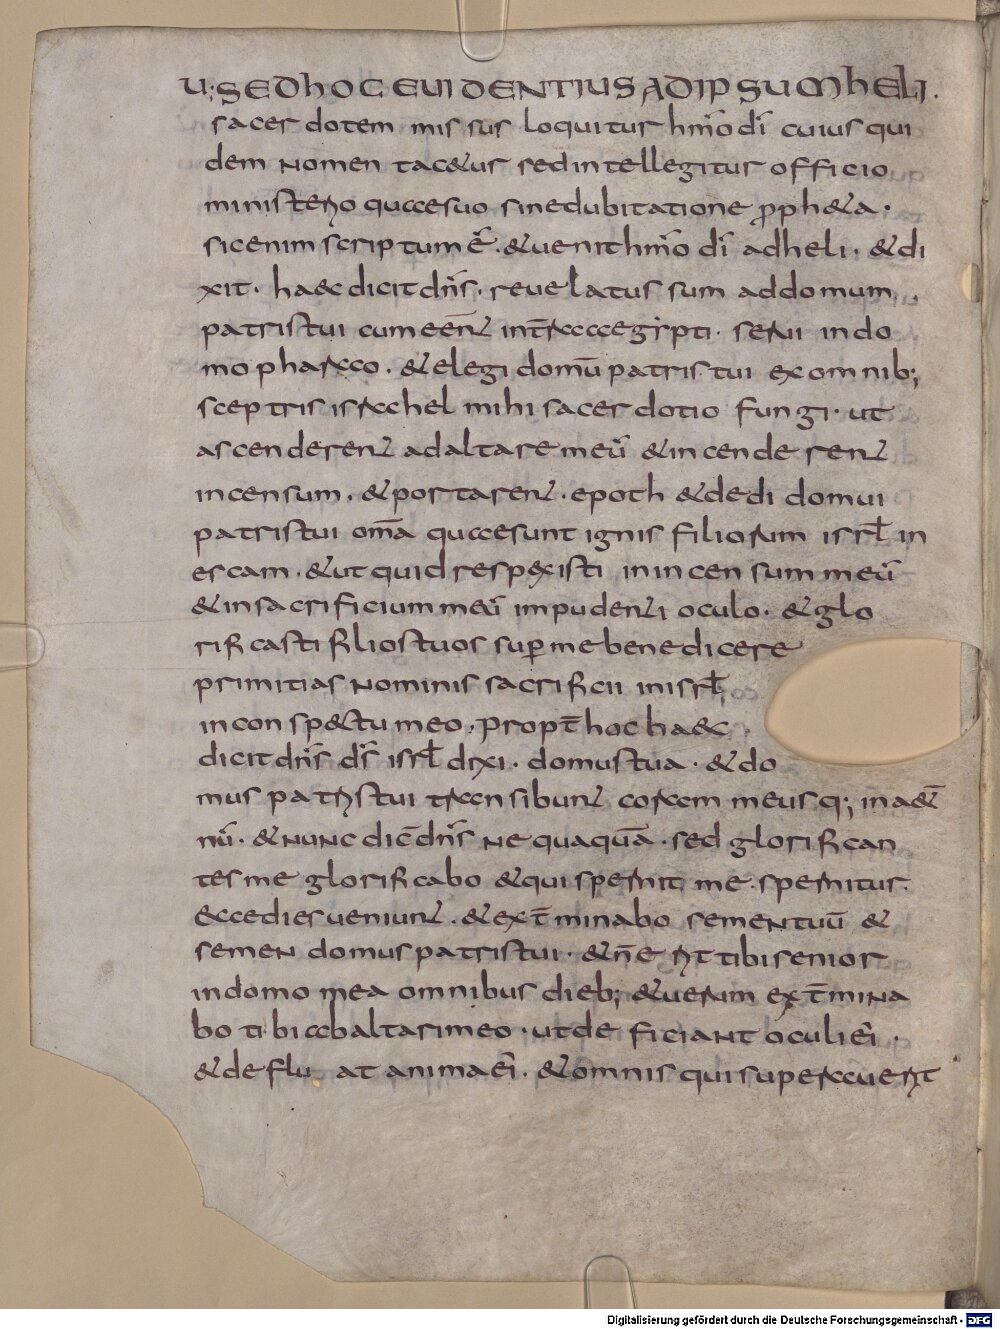 U; SED HOC EUIDENTIUS AD IPSUM HELI.
sacerdotem missus loquitur hm̄o dī cuius qui
dem nomen tac&ur sed intellegitur officio
ministerio quae suo sine dubitatione ꝓph&a.
sic enim scriptum ē. &uenit hm̄o dī ad heli. & di
xit. haec dicit dn̄s. reuelatus sum ad domum
patris tui cum eēnt in t̄ra aegypti. serui in do
mo pharao. & elegi domū patris tui ex omnib;
sceptris israhel mihi sacerdotio fungi. ut
ascenderent ad altare meū & incenderent
incensum. & portarent. epoth & dedi domui
patris tui om̄a quae sunt ignis filiorum isrł in
escam. & ut quid respexisti in incensum meū
& in sacrificium meū impudenti oculo. & glo
rificasti filios tuos sup me benedicere
primitias nominis sacrificii in isrł,
in conspectu meo. propt̄ hoc haec
dicit dn̄s dš isrł dixi. domus tua. & do
mus patris tui transibunt coram me usq; in a&er̄
nū. & nunc dic̄ dn̄s ne quaquā. sed glorifican
tes me glorificabo & qui spernit me. spernitur.
ecce dies ueniunt. & ext̄minabo semen tuū &
semen domus patris tui. & n̄ erit tibi senior
in domo mea omnibus dieb; & uerum ext̄mina
bo tibi ab altari meo. ut deficiant oculi ei
& defluat anima ei. & omnis qui superauerit
Digitalisierung gefördert durch die Deutsche Forschungsgemeinschaft - DFG